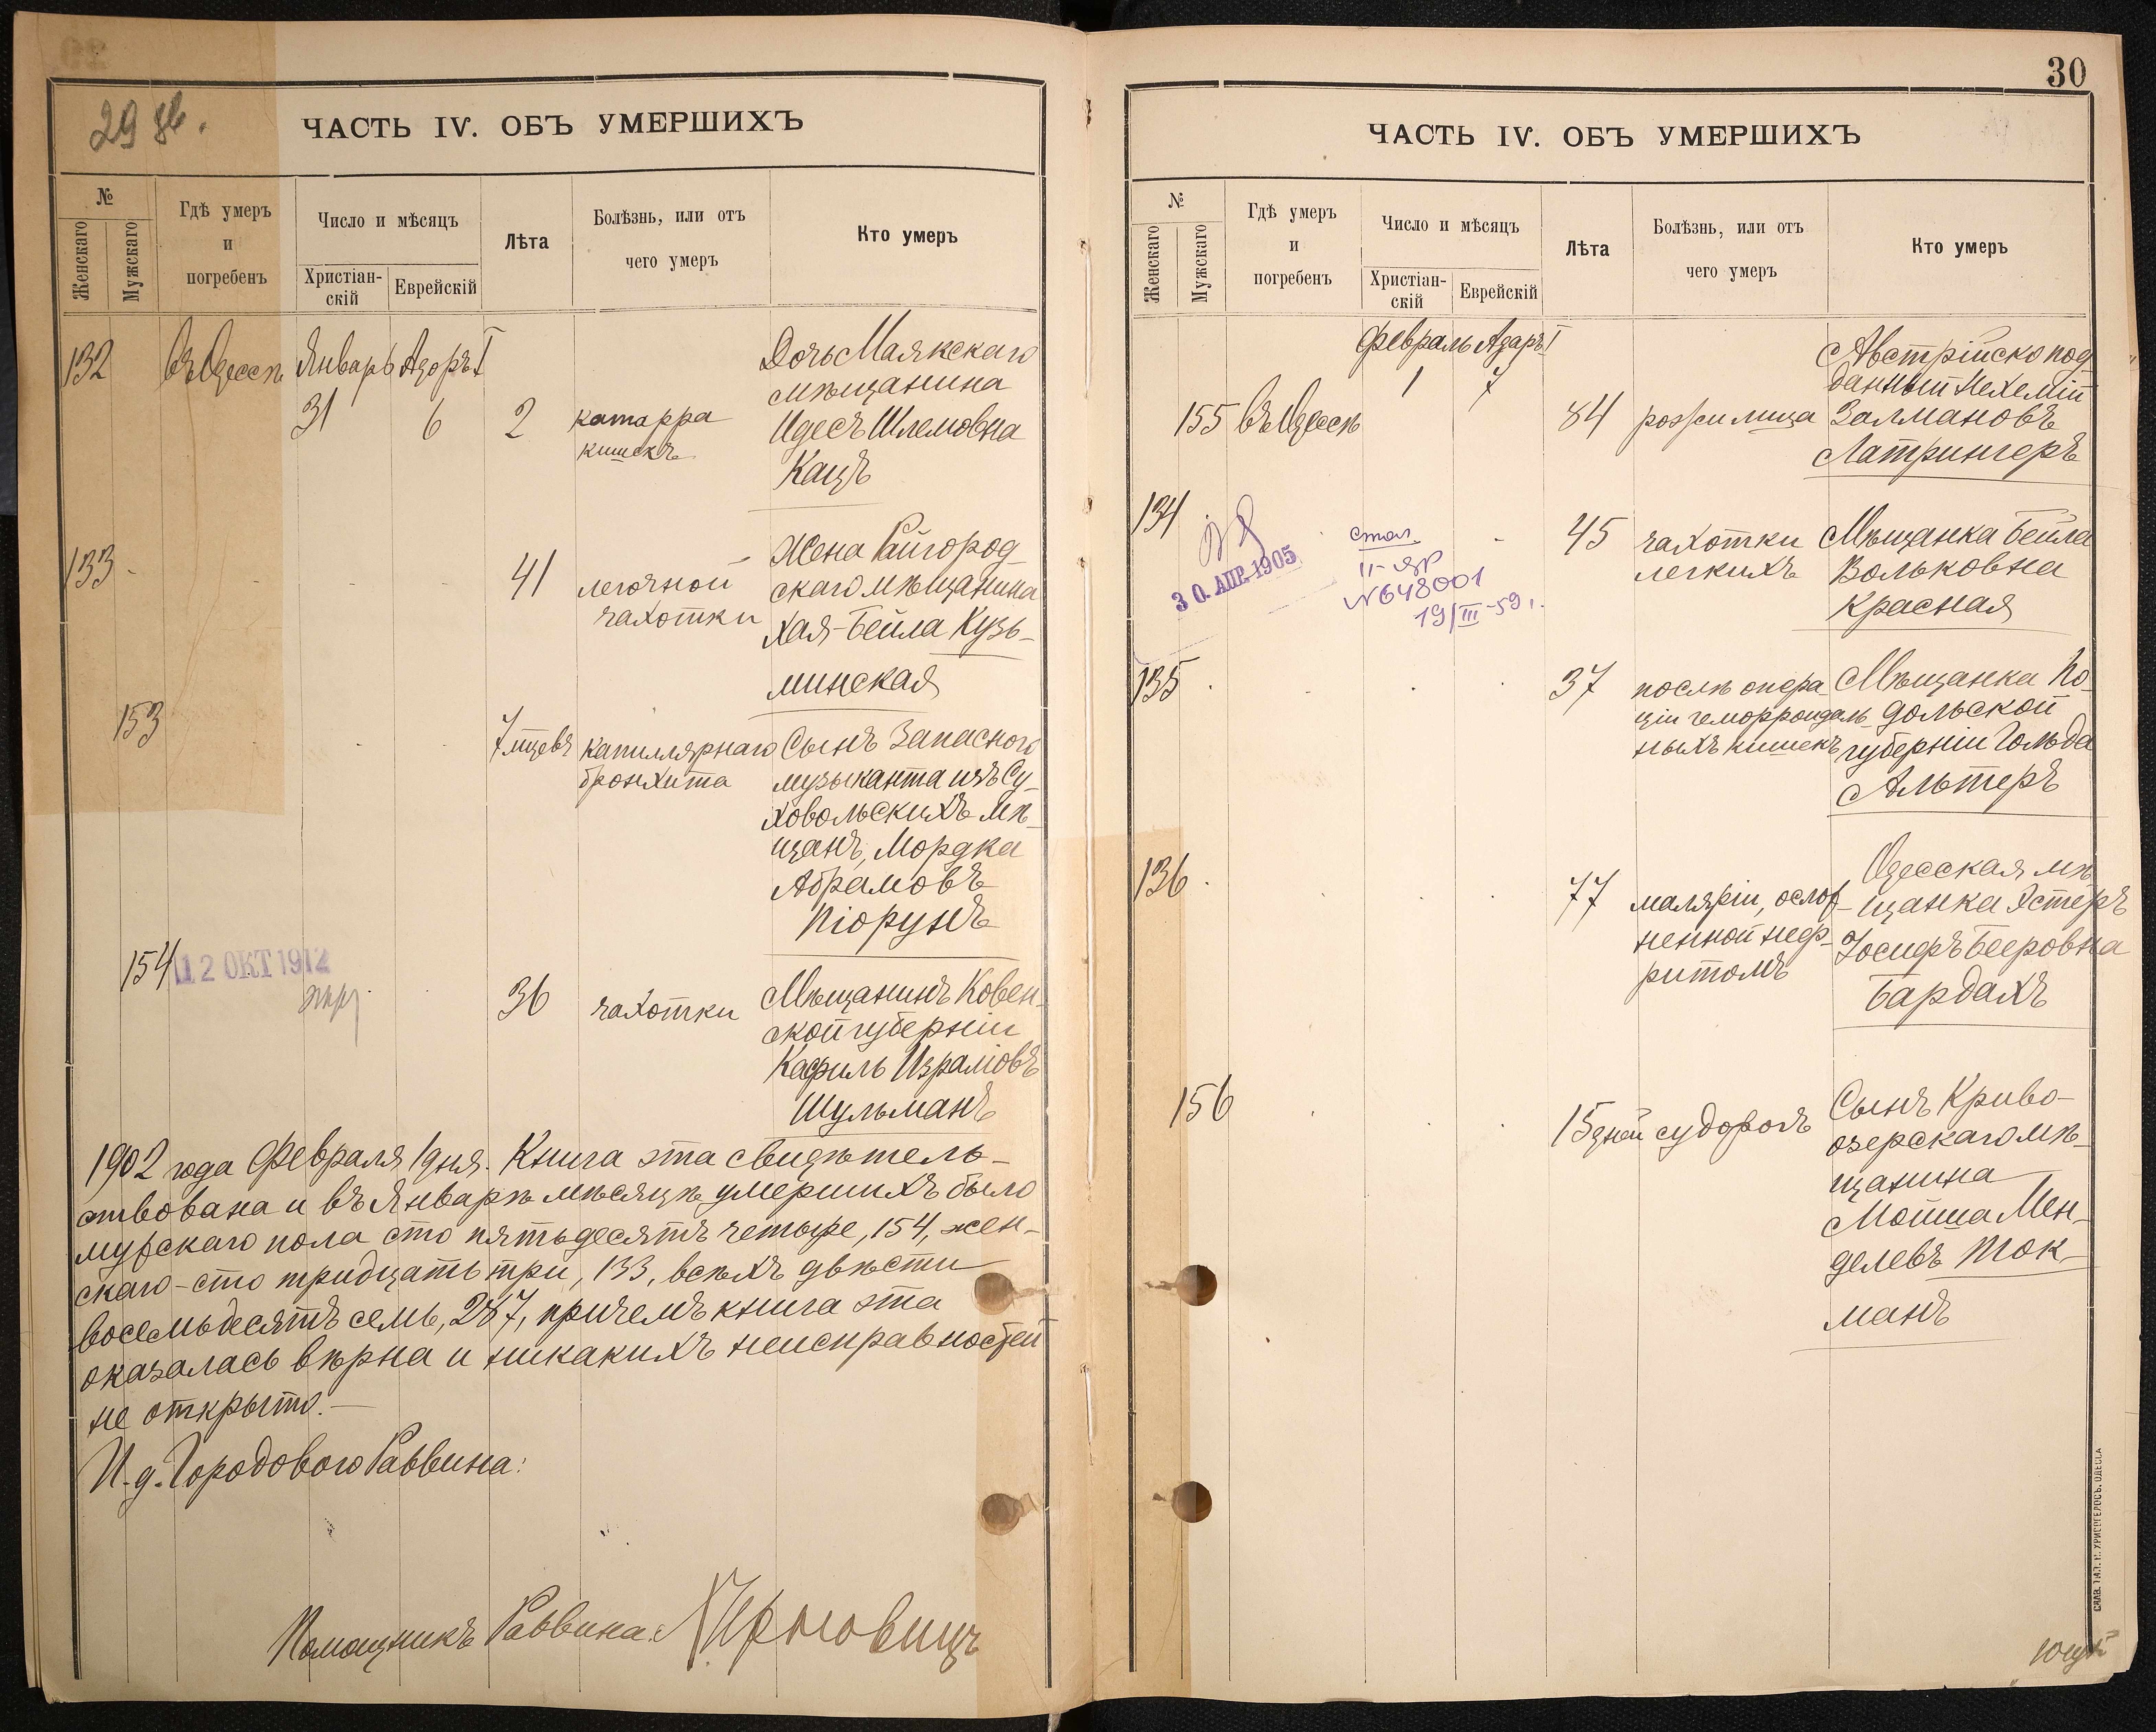 29 об.
ЧАСТЬ IV. ОБЪ УМЕРШИХЪ
№
Женскаго
Мужскаго
Гдѣ умеръ
и
погребенъ
Число и мѣсяцъ
Христіан-
скій
Еврейскій
Лѣта
Болѣзнь, или отъ
чего умеръ
Кто умеръ
132 въ Одессѣ Январь Адоръ I
31 6 2 катарра
кишекъ
Дочь Маякскаго
мѣщанина
Идесъ Шлемовна
Кацъ
133
41 легочной
чахотки
Жена Райгород-
скаго мѣщанина
Хая-Бейла Кузь-
минская
153
7 мцевъ капиллярнаго
бронхита
Сынъ Запасного
музыканта изъ Су-
ховольскихъ мѣ-
щанъ, Мордка
Абрамовъ
Піорунъ
154 12 ОКТ 1912
36 чахотки
Мѣщанинъ Ковен-
ской губерніи
Кафриль Израліовъ
Шульманъ
1902 года Февраля 1 дня. Книга эта свидѣтель-
ствована и въ Январѣ мѣсяцѣ умершихъ было
мужскаго пола сто пятьдесятъ четыре, 154, жен-
скаго - сто тридцать три, 133, всѣхъ двѣсти
восемьдесятъ семь, 287, причемъ книга эта
оказалась вѣрна и никакихъ неисправностей
не открыто. —
И. д. Городового Раввина:
Помощникъ Раввина: Черновицъ
30
ЧАСТЬ IV. ОБЪ УМЕРШИХЪ
№
Женскаго
Мужскаго
Гдѣ умеръ
и
погребенъ
Число и мѣсяцъ
Христіан-
скій
Еврейскій
Лѣта
Болѣзнь, или отъ
чего умеръ
Кто умеръ
Февраль Адаръ I
155 въ Одессѣ 1 7 84
Австрійско под
данный Нехемій
Залмановъ
Латрингеръ
134
30. АПР. 1905
№648001
19/III-59 г.
45 чахотки
легкихъ
Мѣщанка Бейла
Вольковна
Красная
135
37 послѣ опера-
ціи геморроидаль-
ныхъ кишекъ
Мѣщанка По-
дольской
губерніи Гольда
Альтеръ
136
77 маляріи, ослож-
ненной неф-
ритомъ
Одесская мѣ-
щанка Эстеръ
Іосифъ Бееровна
Бардахъ
156
15 дней судорогъ
Сынъ Криво-
озерскаго мѣ-
щанина
Мойша Мен-
делевъ Ток-
манъ
ОДЕССА